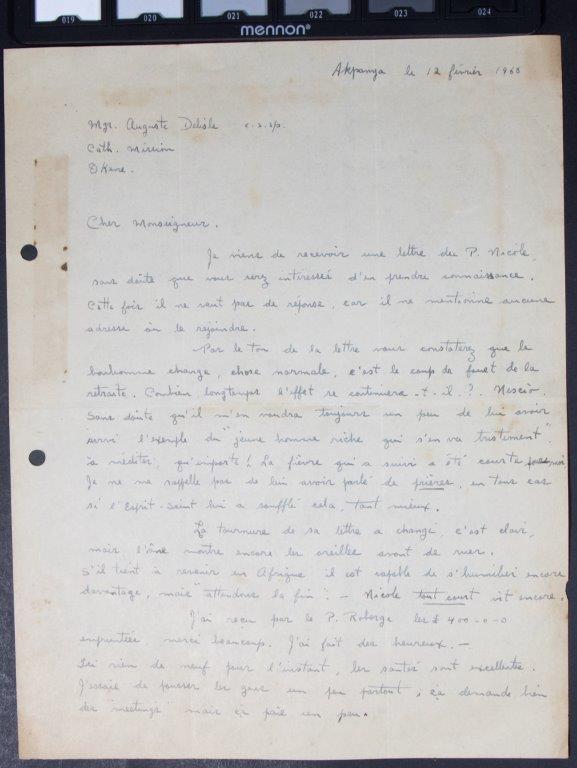 019 020 021 022 023 024
mennon®
Akpanya le 12 février 1960
Mgr. Auguste Delisle c.s.sp.
Cath. Mission
Okene.
Cher Monseigneur.
Je viens de recevoir une lettre du P. Nicole,
sans doûte que vous serez intéressés d'en prendre connaissance.
Cette fois il ne veut pas de réponse, car il ne mentionne aucune
adresse où le rejoindre.
Par le ton de la lettre vous constaterez que le
bonhomme change, chose normale, c'est le coup de fouet de la
retraite. Combien longtemps l'effet se continuera-t-il? Nescio
Sans doûte qu'il m'en voudra toujours un peu de lui avoir
servi l'exemple du "jeune homme riche qui s'en va tristement"
à méditer, qu'importe! La fièvre qui a suivi a été courte
Je ne me rappelle pas de lui avoir parlé de prières, en tous cas
si l'Esprit-Saint lui a soufflé cela, tant mieux.
La tournure de sa lettre a changé, c'est clair,
mais l'âne montre encore les oreilles avant de ruer.
S'il tient à revenir en Afrique il est capable de s'humilier encore
davantage, mais "attendons la fin": - Nicole tout court vit encore.
J'ai reçu par le P. Roberge les £ 400-0-0
empruntées, merci beaucoup. J'ai fait des heureux. -
Ici rien de neuf pour l'instant, les santés sont excellentes.
J'essaie de pousser les gens un peu partout, ça demande bien
des "meetings" mais ça paie un peu.